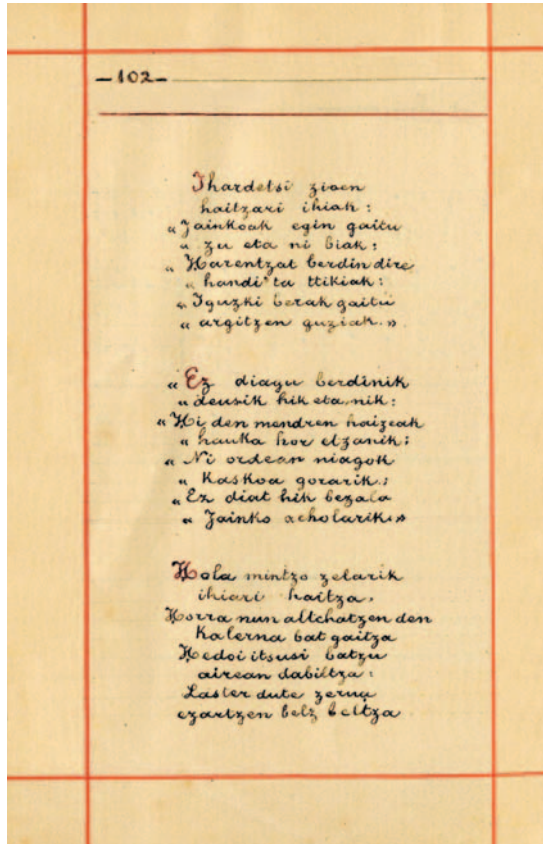 -102-
Ihardetsi zioen
haitzari ihiak:
"Jainkoak egin gaitu
" zu eta ni biak:
" Harentzat berdin dire
" handi 'ta ttikiak:
" Iguzki berak gaitu
" argitzen guziak."
"Ez diagu berdinik
" deusik hik eta nik:
"Hi den mendren haizeak
" hauka hor etzanik:
" Ni ordean niagok
" Kaskoa gorarik:
" Ez diat hik bezala
" Jainko acholarik."
Hola mintzo zelarik
ihiari haitza,
Horra nun altchatzen den
Kalerna bat gaitza
Hedoi itsusi batzu
airean dabiltza:
Laster dute zerua
ezartzen belz beltza